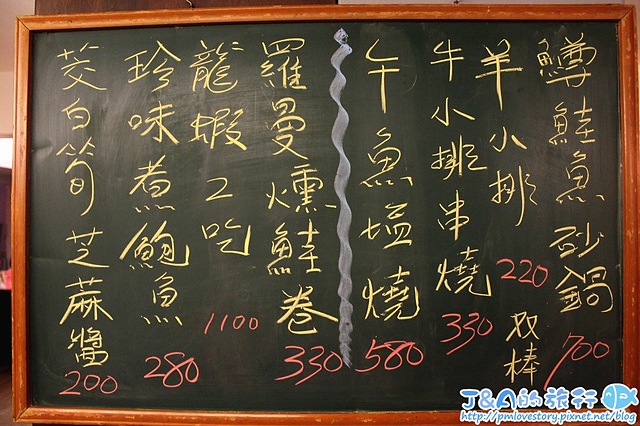 鱒鮭魚砂鍋 700
羊小排 220 双棒
牛小排串燒 330
午魚塩燒 580
羅曼燻鮭卷 330
龍蝦2吃 1100
珍味煮鮑魚 280
茭白筍芝蔴醬 200
J&A的旅行
http://pmlovestory.pixnet.net/blog